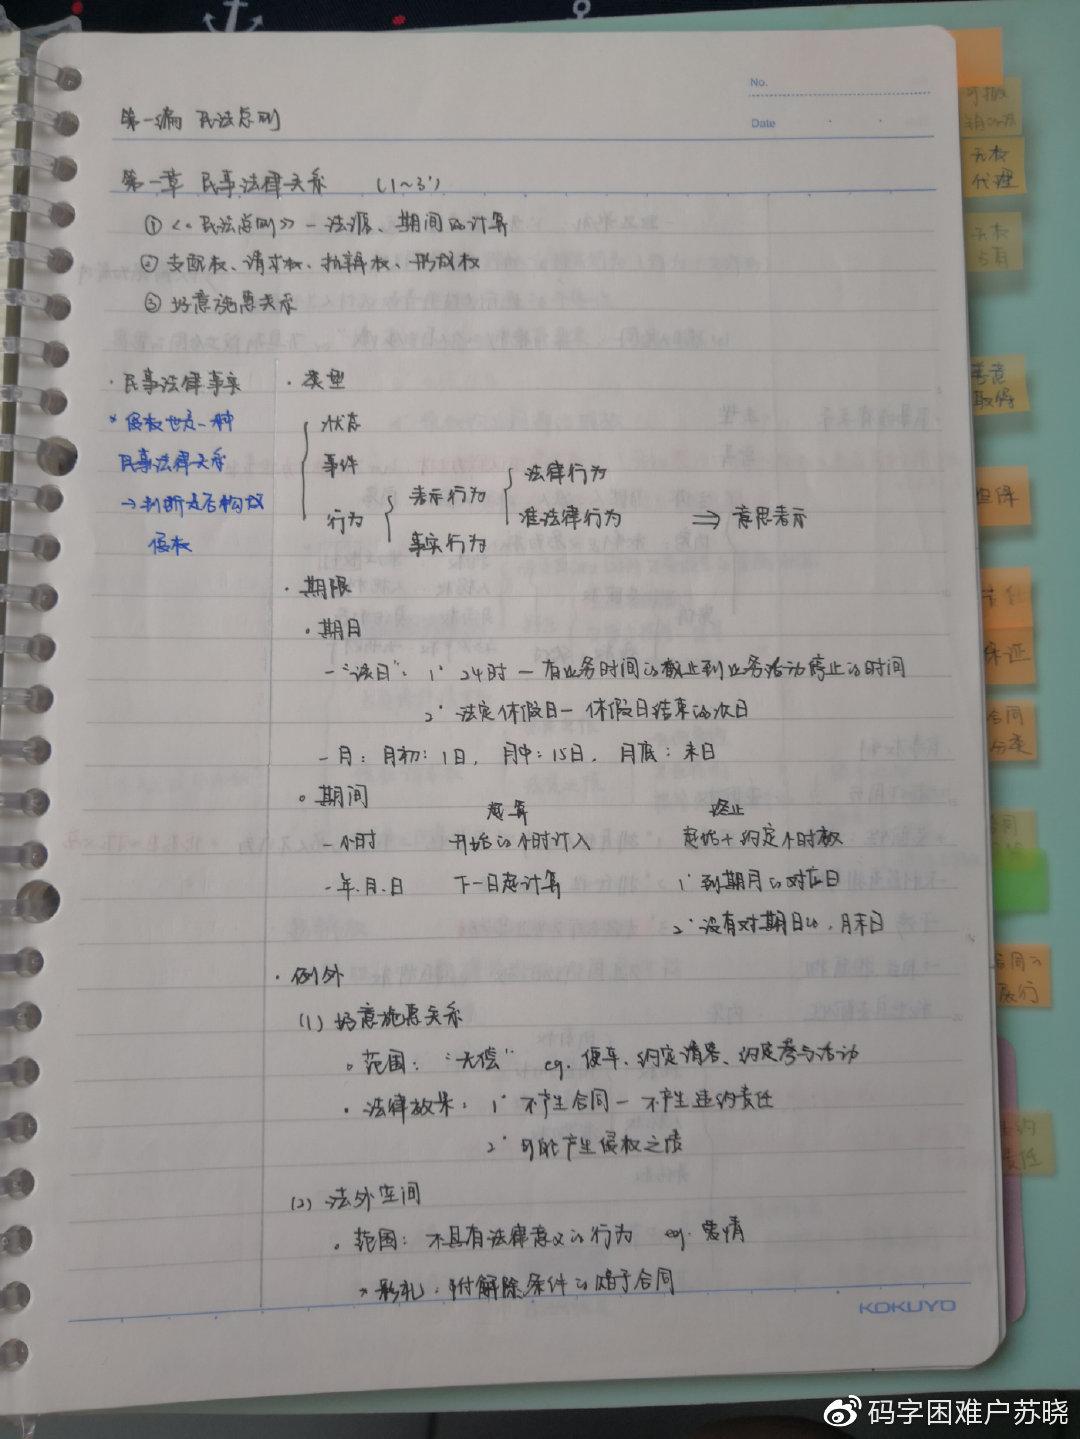 No.
Date
第一编 民法总则
第一章 民事法律关系 (1~3')
① 《民法总则》—法源、期间的计算
② 支配权、请求权、抗辩权、形成权
③ 好意施惠关系
· 民事法律事实
* 侵权也是一种
民事法律关系
→判断是否构成
侵权
· 类型
状态
事件
行为
表示行为
事实行为
法律行为
准法律行为
⇒ 意思表示
· 期限
· 期日
- "该日": 1° 24时 — 有业务时间的截止到业务活动停止的时间
2° 法定休假日 — 休假日结束的次日
- 月: 月初: 1日, 月中: 15日, 月底: 末日
· 期间
起算 终止
- 小时 开始的小时计入 起始+约定小时数
- 年.月.日 下一日起计算 1° 到期月的对应日
2° 没有对期日的, 月末日
· 例外
(1) 好意施惠关系
· 范围: "无偿" eg. 便车、约定请客、约定参与活动
· 法律效果: 1° 不产生合同 — 不产生违约责任
2° 可能产生侵权之债
(2) 法外空间
· 范围: 不具有法律意义的行为 eg. 爱情
* 彩礼: 附解除条件的赠予合同
KOKUYO
无权
代理
无权
占有
善意
取得
担保
保证
合同
分类
码字困难户苏晓